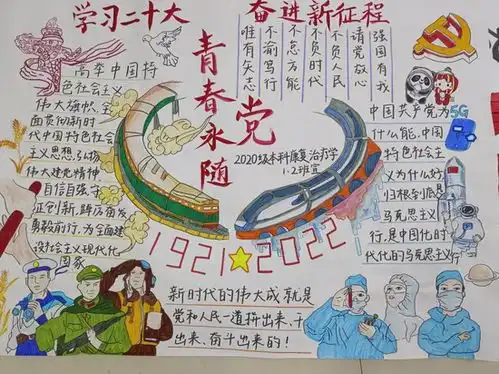 学习二十大
奋进新征程
青春永随党
唯有矢志
不渝笃行
不怠方能
不负时代
不负人民
请党放心
强国有我
高举中国特
色社会主义
伟大旗帜,全
面贯彻新时
代中国特色社会
主义思想,弘扬
伟大建党精神
自信自强、守
正创新,踔厉奋发
勇毅前行,为全面建
设社会主义现代化
国家
2020级本科康复治疗学
1.2班宣
5G
中国共产党为
什么能,中国
特色社会主
义为什么好
归根到底是
马克思主义
行,是中国化时
代化的马克思主义行
1921★2022
新时代的伟大成就是
党和人民一道拼出来、干
出来、奋斗出来的!